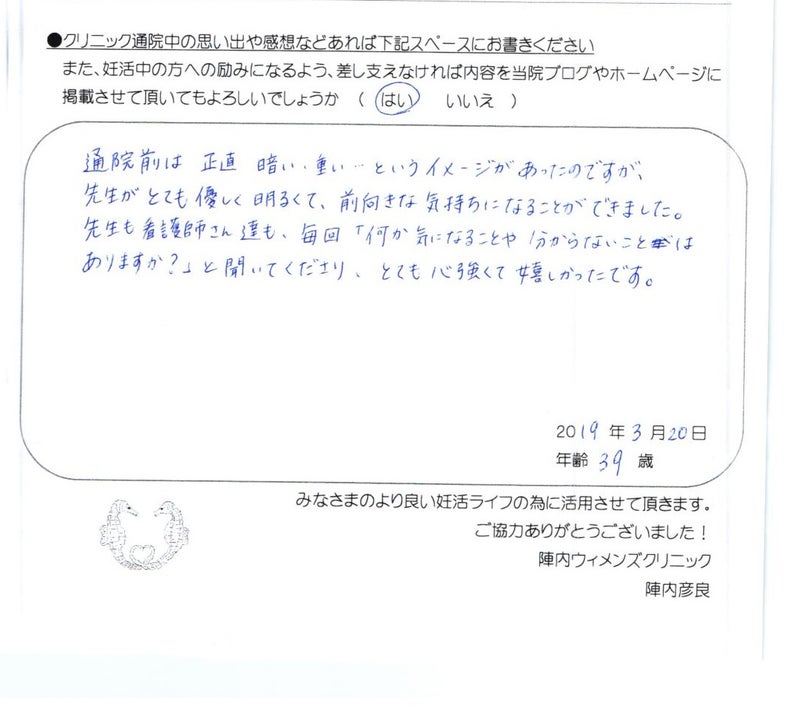 ●クリニック通院中の思い出や感想などあれば下記スペースにお書きください
また、妊活中の方への励みになるよう、差し支えなければ内容を当院ブログやホームページに
掲載させて頂いてもよろしいでしょうか （ はい　いいえ ）
通院前は 正直 暗い、重い… というイメージがあったのですが、
先生がとても優しく明るくて、前向きな気持ちになることができました。
先生も看護師さん達も、毎回「何か気になることや 分からないことは
ありますか?」と聞いてくださり、とても心強くて嬉しかったです。
2019年3月20日
年齢 39 歳
みなさまのより良い妊活ライフの為に活用させて頂きます。
ご協力ありがとうございました！
陣内ウィメンズクリニック
陣内彦良